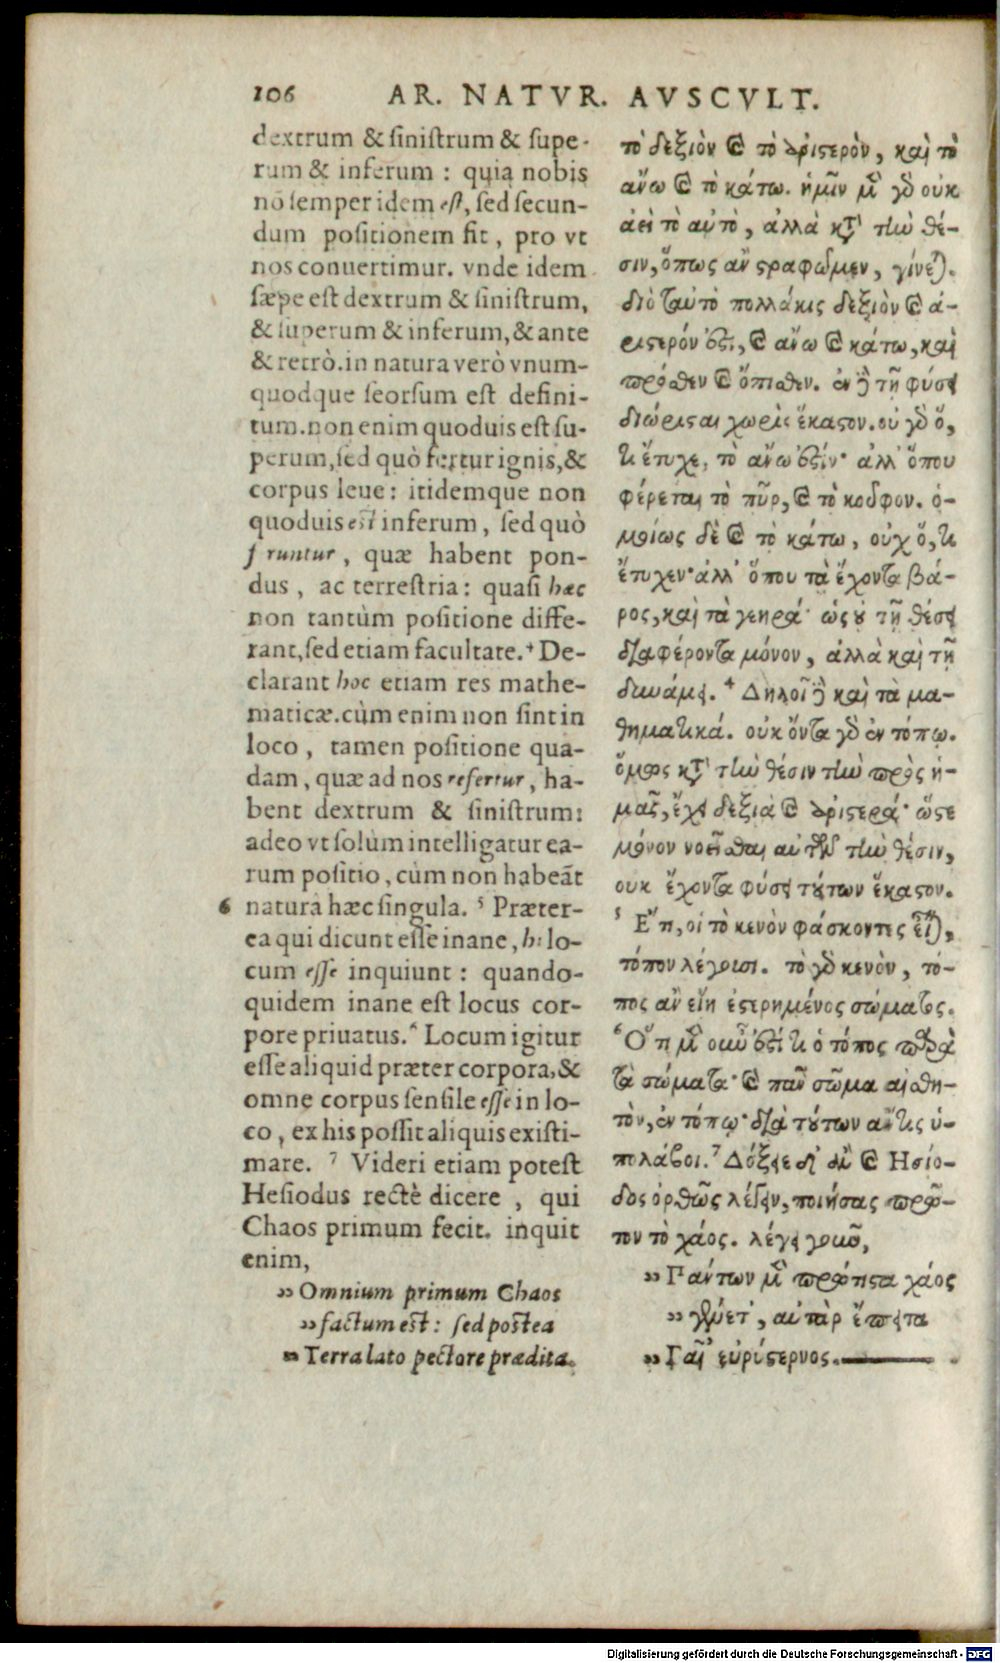 106 AR. NATVR. AVSCVLT.
dextrum & sinistrum & supe-
rum & inferum : quia nobis
nō semper idem est, sed secun-
dum positionem fit, pro vt
nos conuertimur. vnde idem
sæpe est dextrum & sinistrum,
& superum & inferum, & ante
& retrò. in natura verò vnum-
quodque seorsum est defini-
tum. non enim quoduis est su-
perum, sed quò fertur ignis, &
corpus leue : itidemque non
quoduis est inferum, sed quò
f runtur, quæ habent pon-
dus, ac terrestria : quasi hæc
non tantùm positione diffe-
rant, sed etiam facultate. 4 De-
clarant hoc etiam res mathe-
maticæ. cùm enim non sint in
loco, tamen positione qua-
dam, quæ ad nos refertur, ha-
bent dextrum & sinistrum:
adeo vt solùm intelligatur ea-
rum positio, cùm non habeāt
6 natura hæc singula. 5 Præter-
ea qui dicunt esse inane, hi lo-
cum esse inquiunt : quando-
quidem inane est locus cor-
pore priuatus. 6 Locum igitur
esse aliquid præter corpora, &
omne corpus sensile esse in lo-
co, ex his possit aliquis existi-
mare. 7 Videri etiam potest
Hesiodus rectè dicere, qui
Chaos primum fecit. inquit
enim,
» Omnium primum Chaos
» factum est : sed postea
» Terra lato pectore prædita.
τὸ δεξιὸν ϗ τὸ ἀριστερὸν, καὶ τὸ
ἄνω ϗ τὸ κάτω. ἡμῖν μὲν γὰρ οὐκ
ἀεὶ τὸ αὐτὸ, ἀλλὰ κατὰ τὴν θέ-
σιν, ὅπως ἂν στραφῶμεν, γίνεται.
διὸ ταὐτὸ πολλάκις δεξιὸν ϗ ἀ-
ριστερόν ἐστι, ϗ ἄνω ϗ κάτω, καὶ
πρόσθεν ϗ ὄπισθεν. ἐν δὲ τῇ φύσει
διώρισται χωρὶς ἕκαστον. οὐ γὰρ ὅ,
τι ἔτυχε, τὸ ἄνω ἐστίν· ἀλλ' ὅπου
φέρεται τὸ πῦρ, ϗ τὸ κοῦφον. ὁ-
μοίως δὲ ϗ τὸ κάτω, οὐχ ὅ, τι
ἔτυχεν· ἀλλ' ὅπου τὰ ἔχοντα βά-
ρος, καὶ τὰ γεηρά· ὡς οὐ τῇ θέσει
διαφέροντα μόνον, ἀλλὰ καὶ τῇ
δυνάμει. 4 Δηλοῖ δὲ καὶ τὰ μα-
θηματικά. οὐκ ὄντα γὰρ ἐν τόπῳ.
ὅμως κατὰ τὴν θέσιν τὴν πρὸς ἡ-
μᾶς, ἔχει δεξιὰ ϗ ἀριστερά· ὥστε
μόνον νοεῖσθαι αὐτῶν τὴν θέσιν,
οὐκ ἔχοντα φύσει τούτων ἕκαστον.
5 Ἔτι, οἱ τὸ κενὸν φάσκοντες εἶναι,
τόπον λέγουσι. τὸ γὰρ κενὸν, τό-
πος ἂν εἴη ἐστερημένος σώματος.
6 Ὅτι μὲν οὖν ἐστί τι ὁ τόπος παρὰ
τὰ σώματα· ϗ πᾶν σῶμα αἰσθη-
τὸν, ἐν τόπῳ· διὰ τούτων ἄν τις ὑ-
πολάβοι. 7 Δόξειε δ' ἂν ϗ Ἡσίο-
δος ὀρθῶς λέγειν, ποιήσας πρῶ-
τον τὸ χάος. λέγει γοῦν,
» Πάντων μὲν πρώτιστα χάος
» γένετ', αὐτὰρ ἔπειτα
» Γαῖ' εὐρύστερνος.
Digitalisierung gefördert durch die Deutsche Forschungsgemeinschaft - DFG